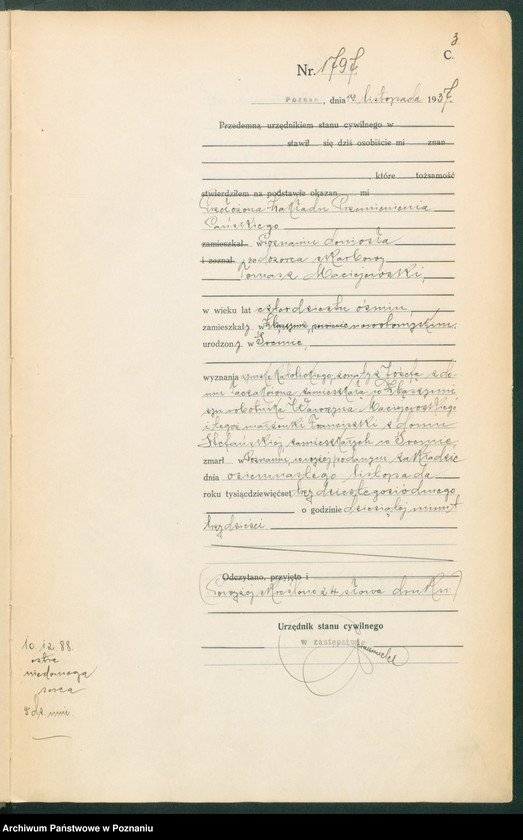 3
C.
Nr. 1797.
Poznań, dnia listopada 1937.
Przedemną urzędnikiem stanu cywilnego w
stawił się dziś osobiście mi znan
, które tożsamość
stwierdziłem na podstawie okazan mi
Przełożona Zakładu Przemienienia
Pańskiego
zamieszkał w Poznaniu doniosła
i zeznał że dozorca skarbowy
Tomasz Maciejewski,
w wieku lat czterdzieści ośmiu,
zamieszkał w powiecie nowotomyskim,
urodzon w Śremie,
wyznania rzymsko katolickiego, żonaty z Józefą z do-
mu zamieszkałą w
syn robotnika Wawrzyna Maciejewskiego
i tegoż małżonki Franciszki z domu
Stefańskiej zamieszkałych w Śremie,
zmarł w Poznaniu, wyżej podanym zakładzie
dnia osiemnastego listopada
roku tysiąc dziewięćset trzydziestego siódmego
o godzinie dziesiątej minut
trzydzieści.
Odczytano, przyjęto i
Powyżej skreślono 24 słowa druku
Urzędnik stanu cywilnego
w zastępstwie
10.12.88.
ostra
niedomoga
serca
Archiwum Państwowe w Poznaniu